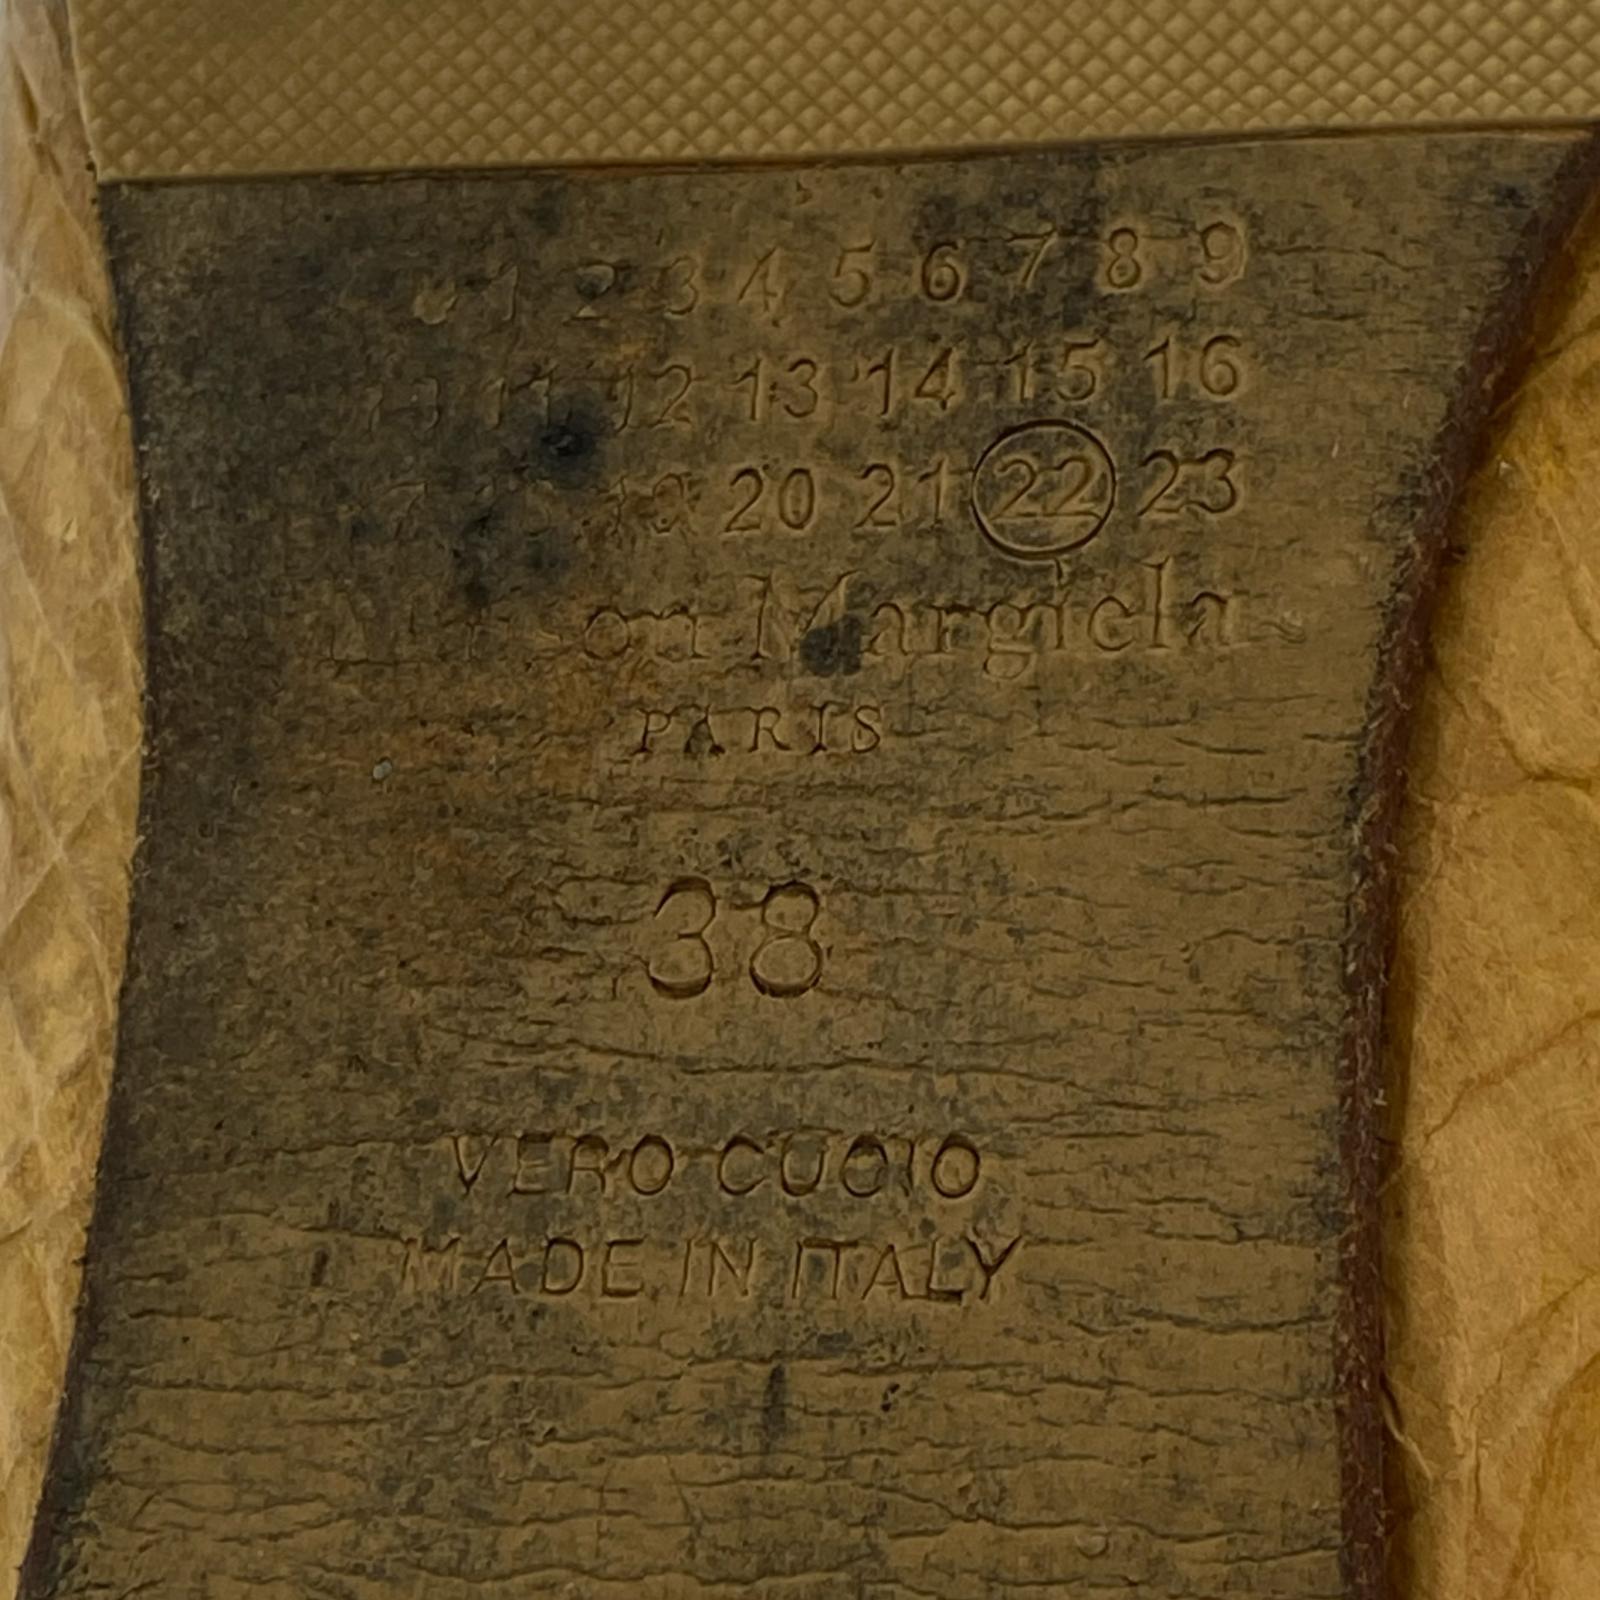 0 1 2 3 4 5 6 7 8 9
10 11 12 13 14 15 16
19 20 21 22 23
Maison Margiela
PARIS
38
VERO CUOIO
MADE IN ITALY